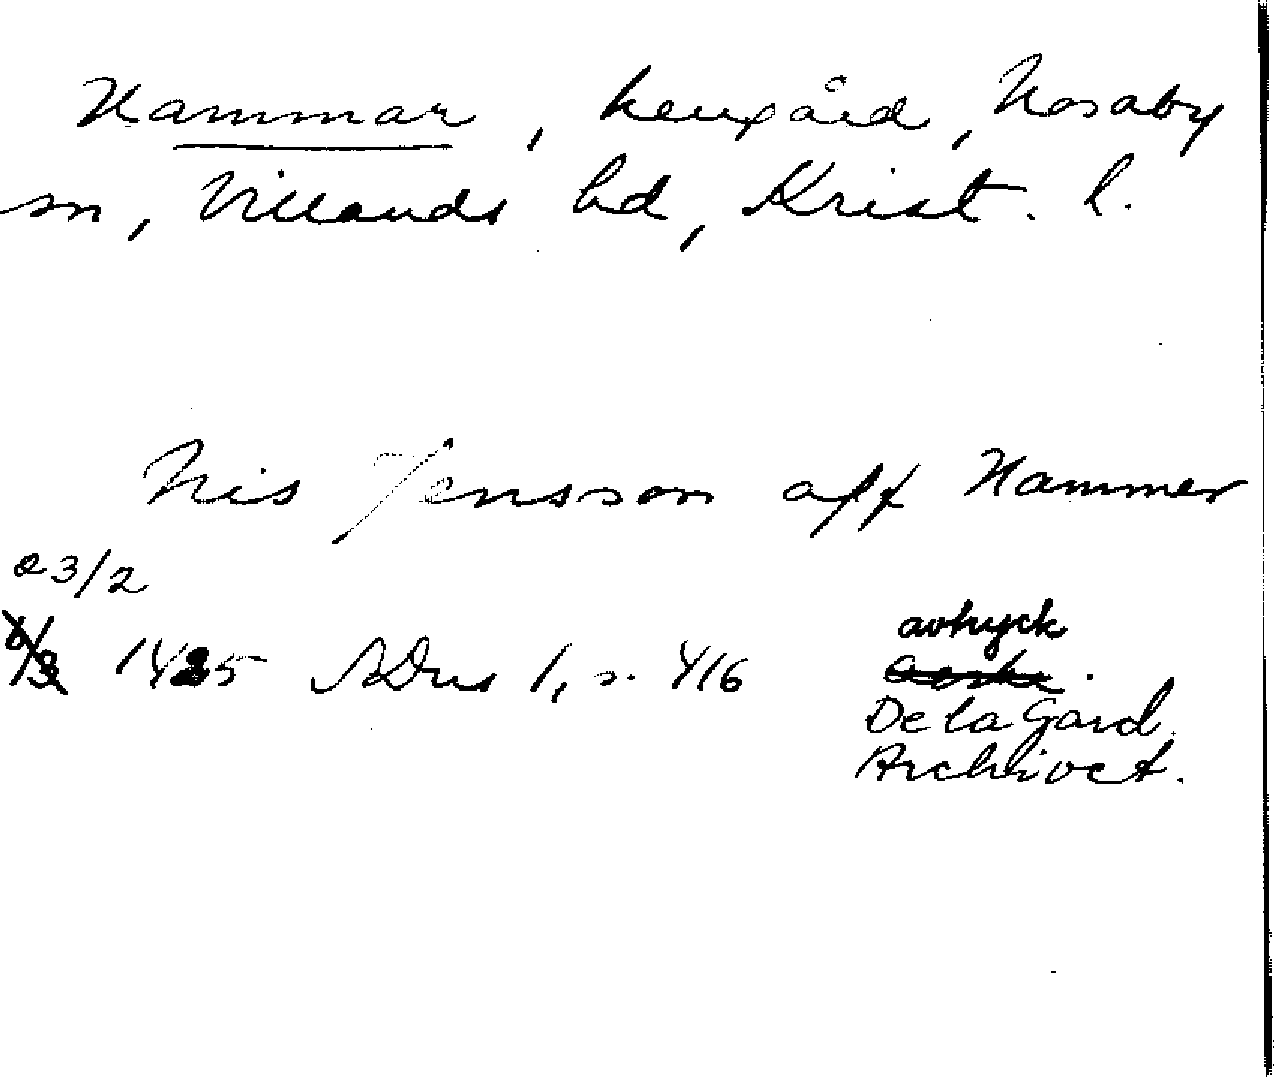 Hammar, herrgård, Nosaby
sn, Villands hd, Krist. l.
Nis Jensson aff Hammer
23/2
SDns 1, s. 416
avtryck
De la Gard.
Archivet.